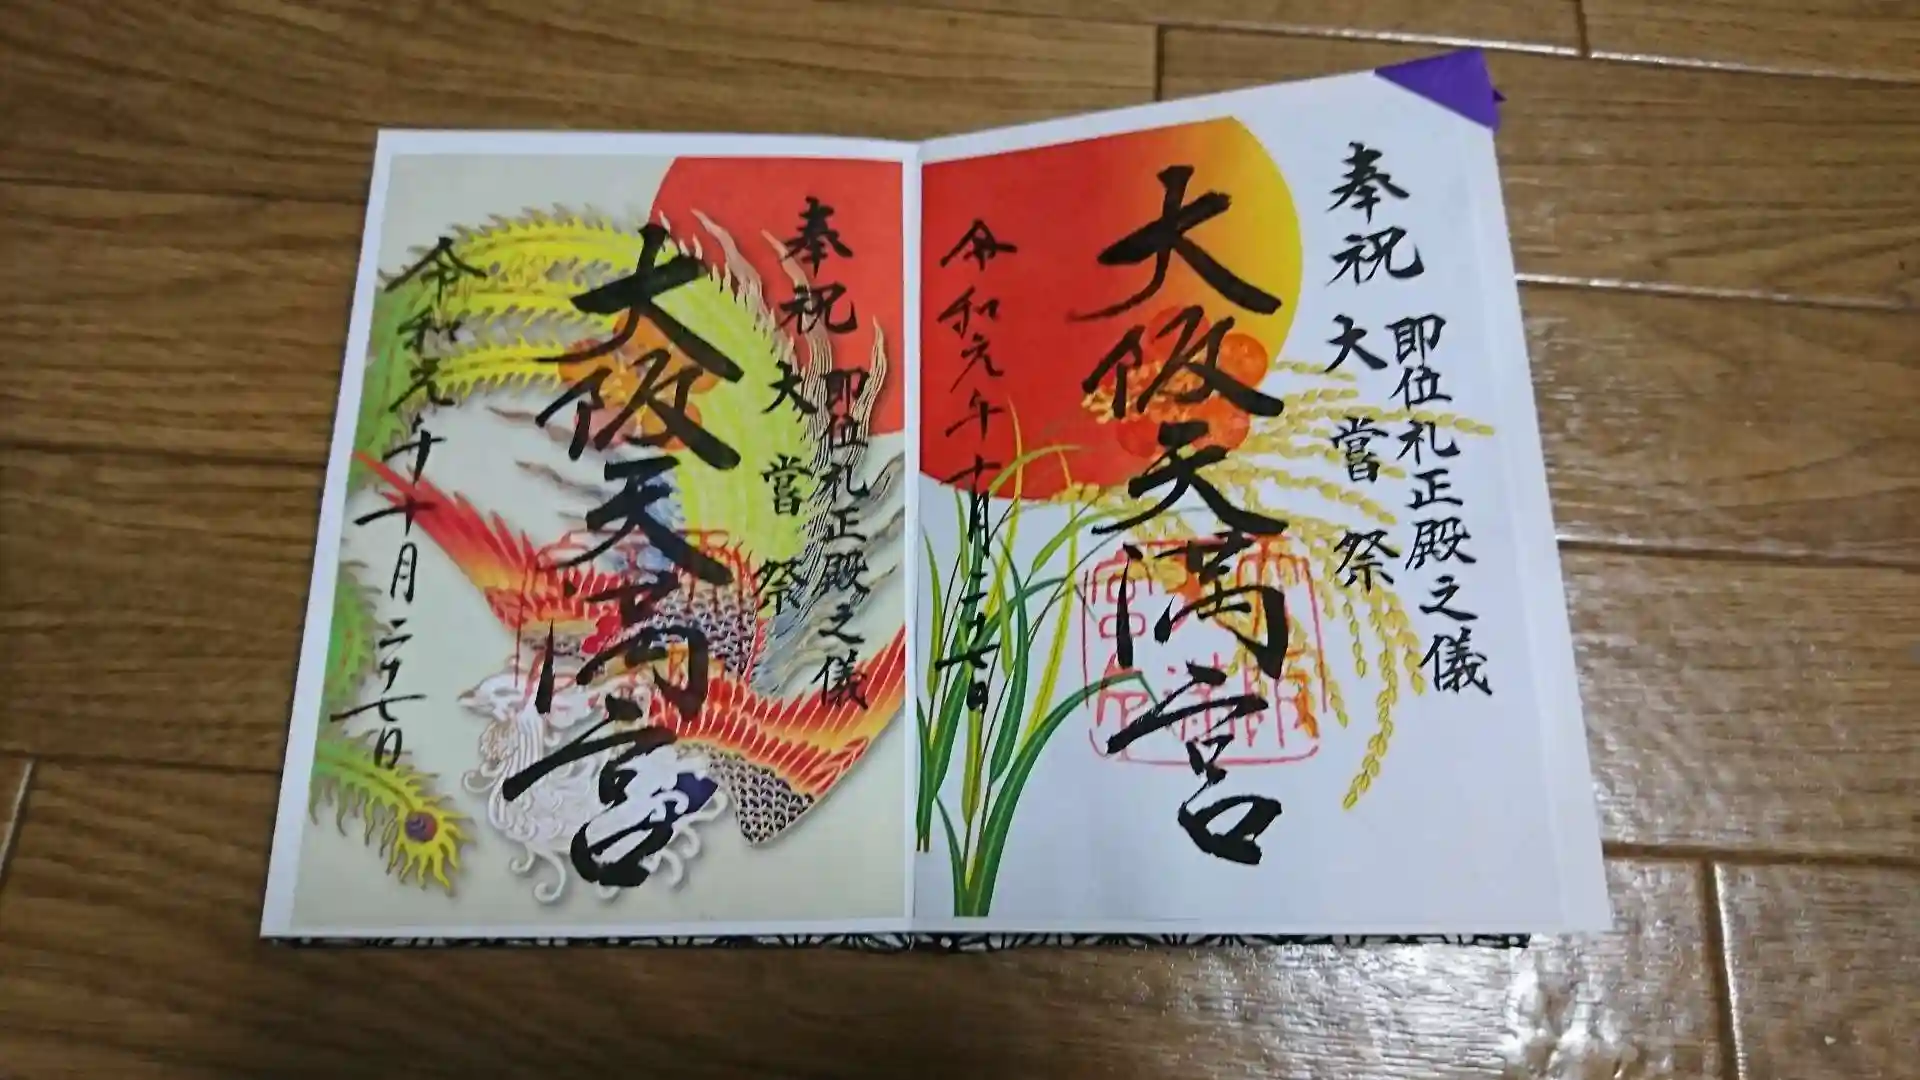 奉祝
即位礼正殿之儀
大嘗祭
大阪天満宮
令和元年十月二十七日
奉祝
即位礼正殿之儀
大嘗祭
大阪天満宮
令和元年十月二十七日